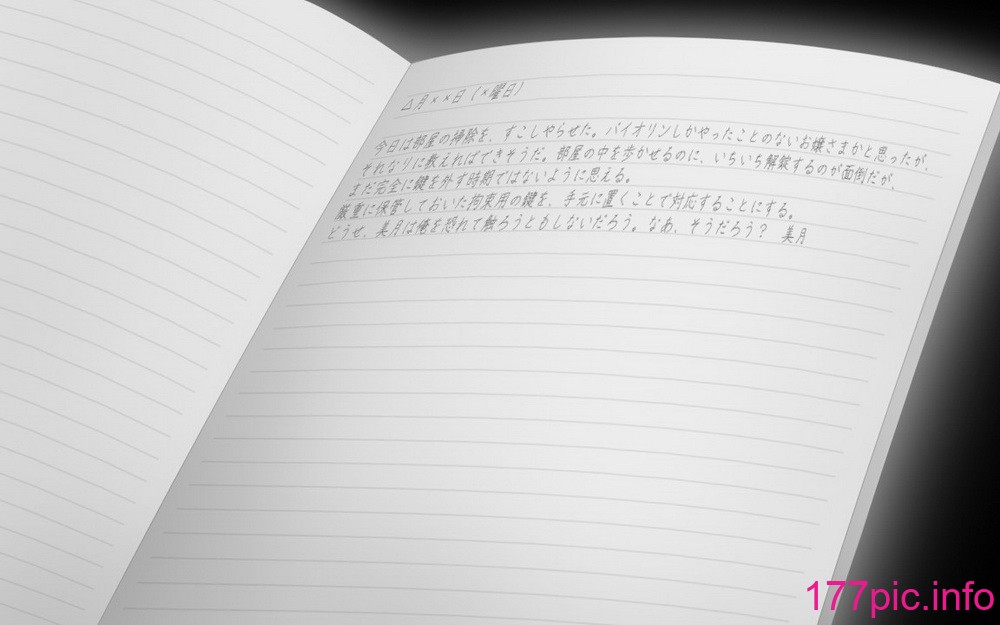 △月××日（×曜日）
今日は部屋の掃除を、すこしやらせた。バイオリンしかやったことのないお嬢さまかと思ったが、
それなりに教えればできそうだ。部屋の中を歩かせるのに、いちいち解錠するのが面倒だが、
まだ完全に鍵を外す時期ではないように思える。
厳重に保管しておいた拘束用の鍵を、手元に置くことで対応することにする。
どうせ、美月は俺を恐れて触ろうともしないだろう。なあ、そうだろう？　美月
177pic.info